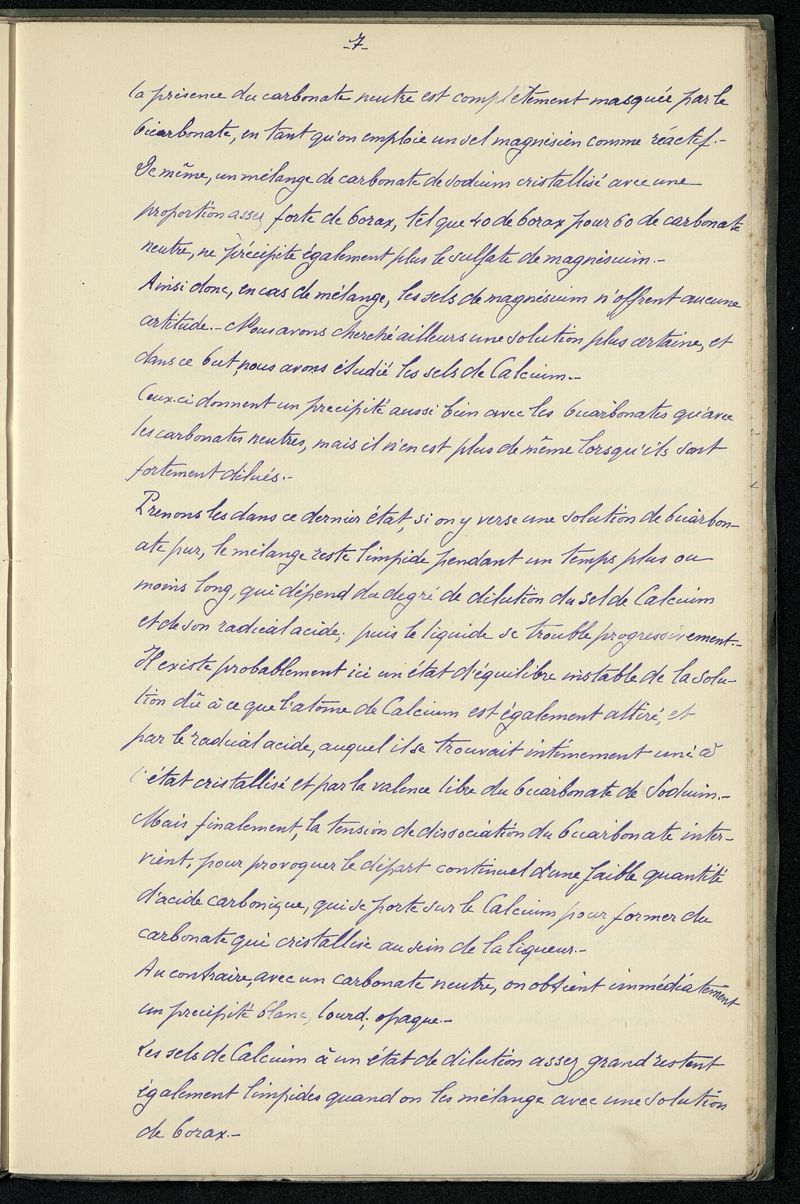 -7-
la présence du carbonate neutre est complètement masquée par le
bicarbonate, en tant qu'on emploie un sel magnésien comme réactif.-
De même, un mélange de carbonate de sodium cristallisé avec une
proportion assez forte de borax, tel que 40 de borax pour 60 de carbonate
neutre, ne précipite également plus le sulfate de magnésium.-
Ainsi donc, en cas de mélange, les sels de magnésium n'offrent aucune
certitude.- Nous avons cherché ailleurs une solution plus certaine, et
dans ce but nous avons étudié les sels de Calcium.-
Ceux-ci donnent un précipité aussi bien avec les bicarbonates qu'avec
les carbonates neutres, mais il n'en est plus de même lorsqu'ils sont
fortement dilués.-
Prenons les dans ce dernier état, si on y verse une solution de bicarbon-
ate pur, le mélange reste limpide pendant un temps plus ou
moins long, qui dépend du degré de dilution du sel de Calcium
et de son radical acide; puis le liquide se trouble progressivement.-
Il existe probablement ici un état d'équilibre instable de la solu-
tion dû à ce que l'atôme de Calcium est également attiré, et
par le radical acide, auquel il se trouvait intimement uni à
l'état cristallisé et par la valence libre du bicarbonate de Sodium.-
Mais finalement, la tension de dissociation du bicarbonate inter-
vient, pour provoquer le départ continuel d'une faible quantité
d'acide carbonique, qui se porte sur le Calcium pour former du
carbonate qui cristallise au sein de la liqueur.-
Au contraire, avec un carbonate neutre, on obtient immédiatement
un précipité blanc, lourd, opaque.-
Les sels de Calcium à un état de dilution assez grand restent
également limpides quand on les mélange avec une solution
de borax.-